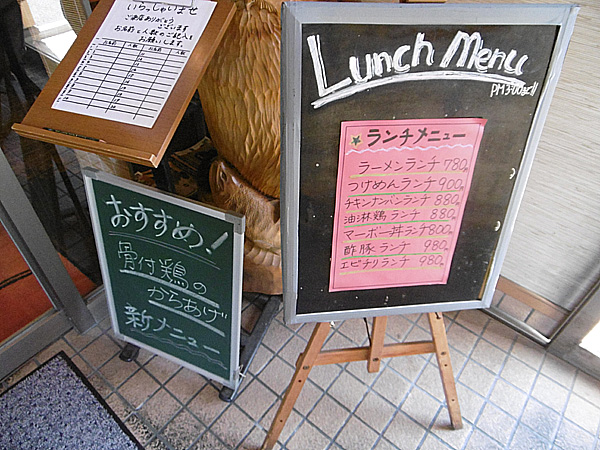 いらっしゃいませ
ご来店ありがとう
ございます。
お名前と人数のご記入を
お願いします。
おすすめ!
骨付鶏の
からあげ
新メニュー
Lunch Menu
PM3:00まで
ランチメニュー
ラーメンランチ 780
つけめんランチ 900
チキンナンバンランチ 880
油淋鶏ランチ 880
マーボー丼ランチ 800
酢豚ランチ 980
エビチリランチ 980